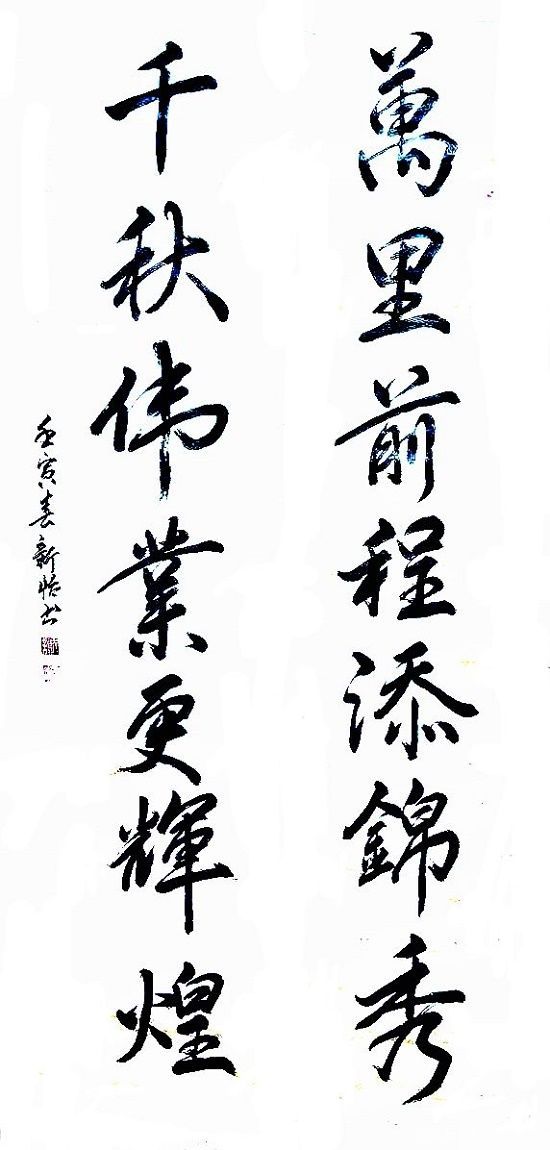 萬里前程添錦秀
千秋伟業更輝煌
壬寅春新悟书